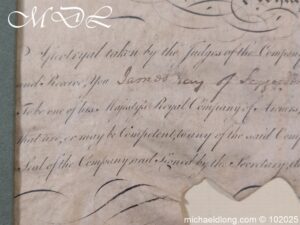 MDL
Geo Royal taken by the Judges of the Company
and Receive, You James
To be one of his Majesty's Royal Company of
that are, or may be Competent, to any of the said Comp
Seal of the Company and Signed by the Secretary, th
michaeldlong.com © 102025